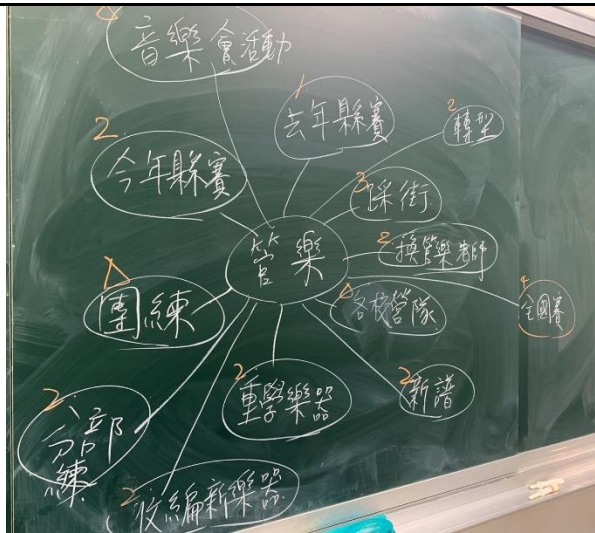 音樂會活動
1
去年縣賽
2
轉型
2
今年縣賽
3
踩街
管樂
2
換管樂老師
團練
各校營隊
4
全國賽
2
重學樂器
2
新譜
2
分部練
2
收編新樂器